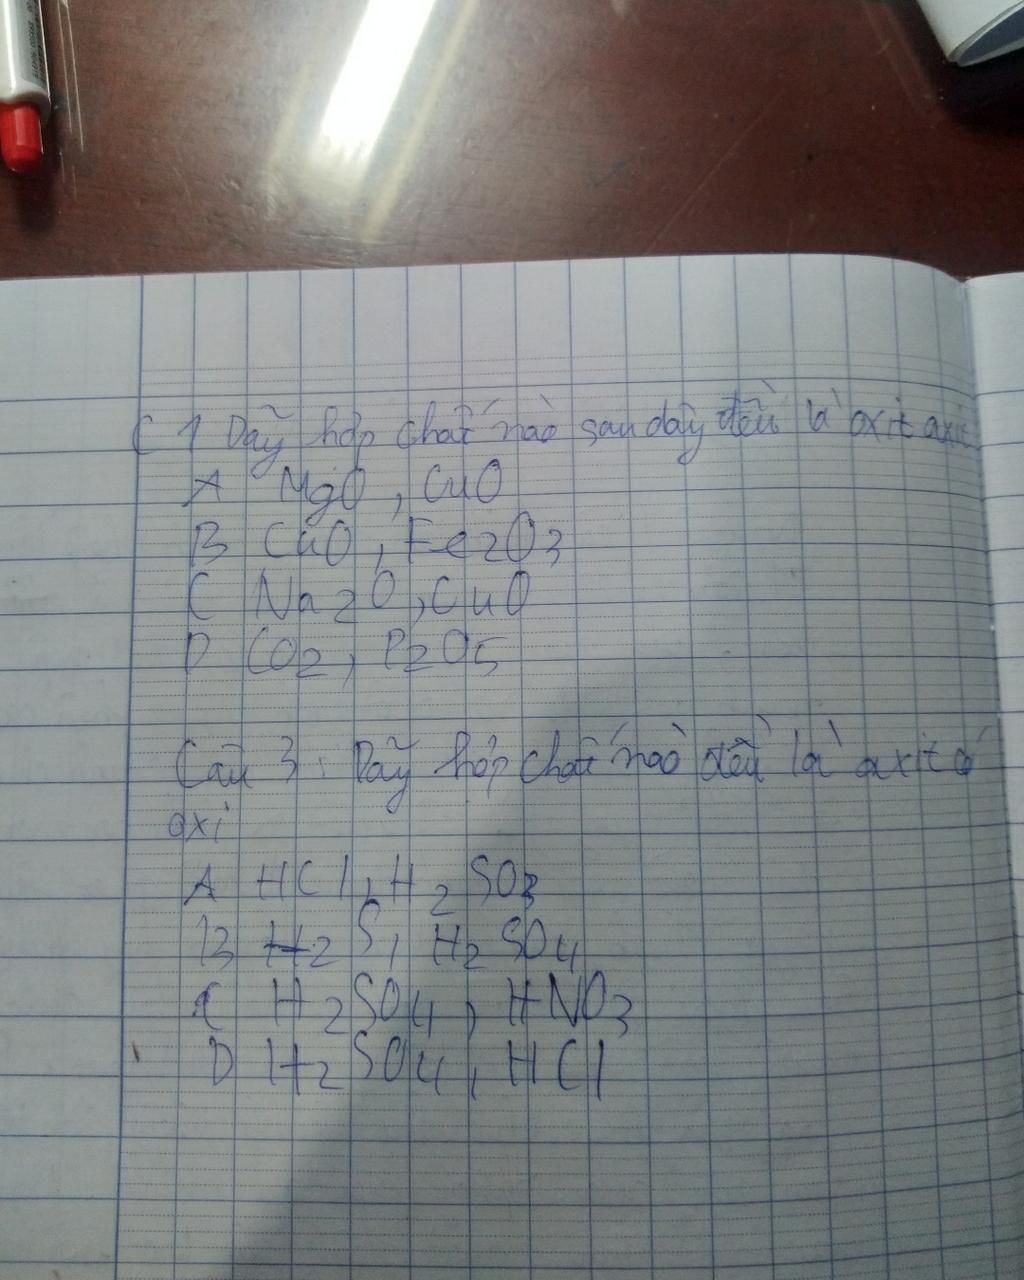 C 1 Dãy hợp chất nào sau dây đều là oxit axit
A MgO, CuO
B CuO, Fe2O3
C Na2O, CuO
D CO2, P2O5
Câu 3: Dãy hợp chất nào đều là axit có
oxi
A HCl, H2SO3
B H2S, H2SO4
C H2SO4, HNO3
D H2SO4, HCl